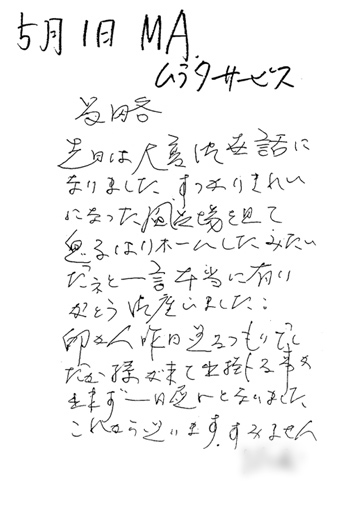 5月1日 M A.
ムラタサービス
前略
先日は大変御世話に
なりました すっかりきれい
になった風呂場を見て
息子はリホームしたみたい
だネと一言 本当に有り
がとう御座いました:
昨日送るつもりでし
たが 様が来て出掛ける事が
出来ず一日遅れとなりました
これから送います。すみません